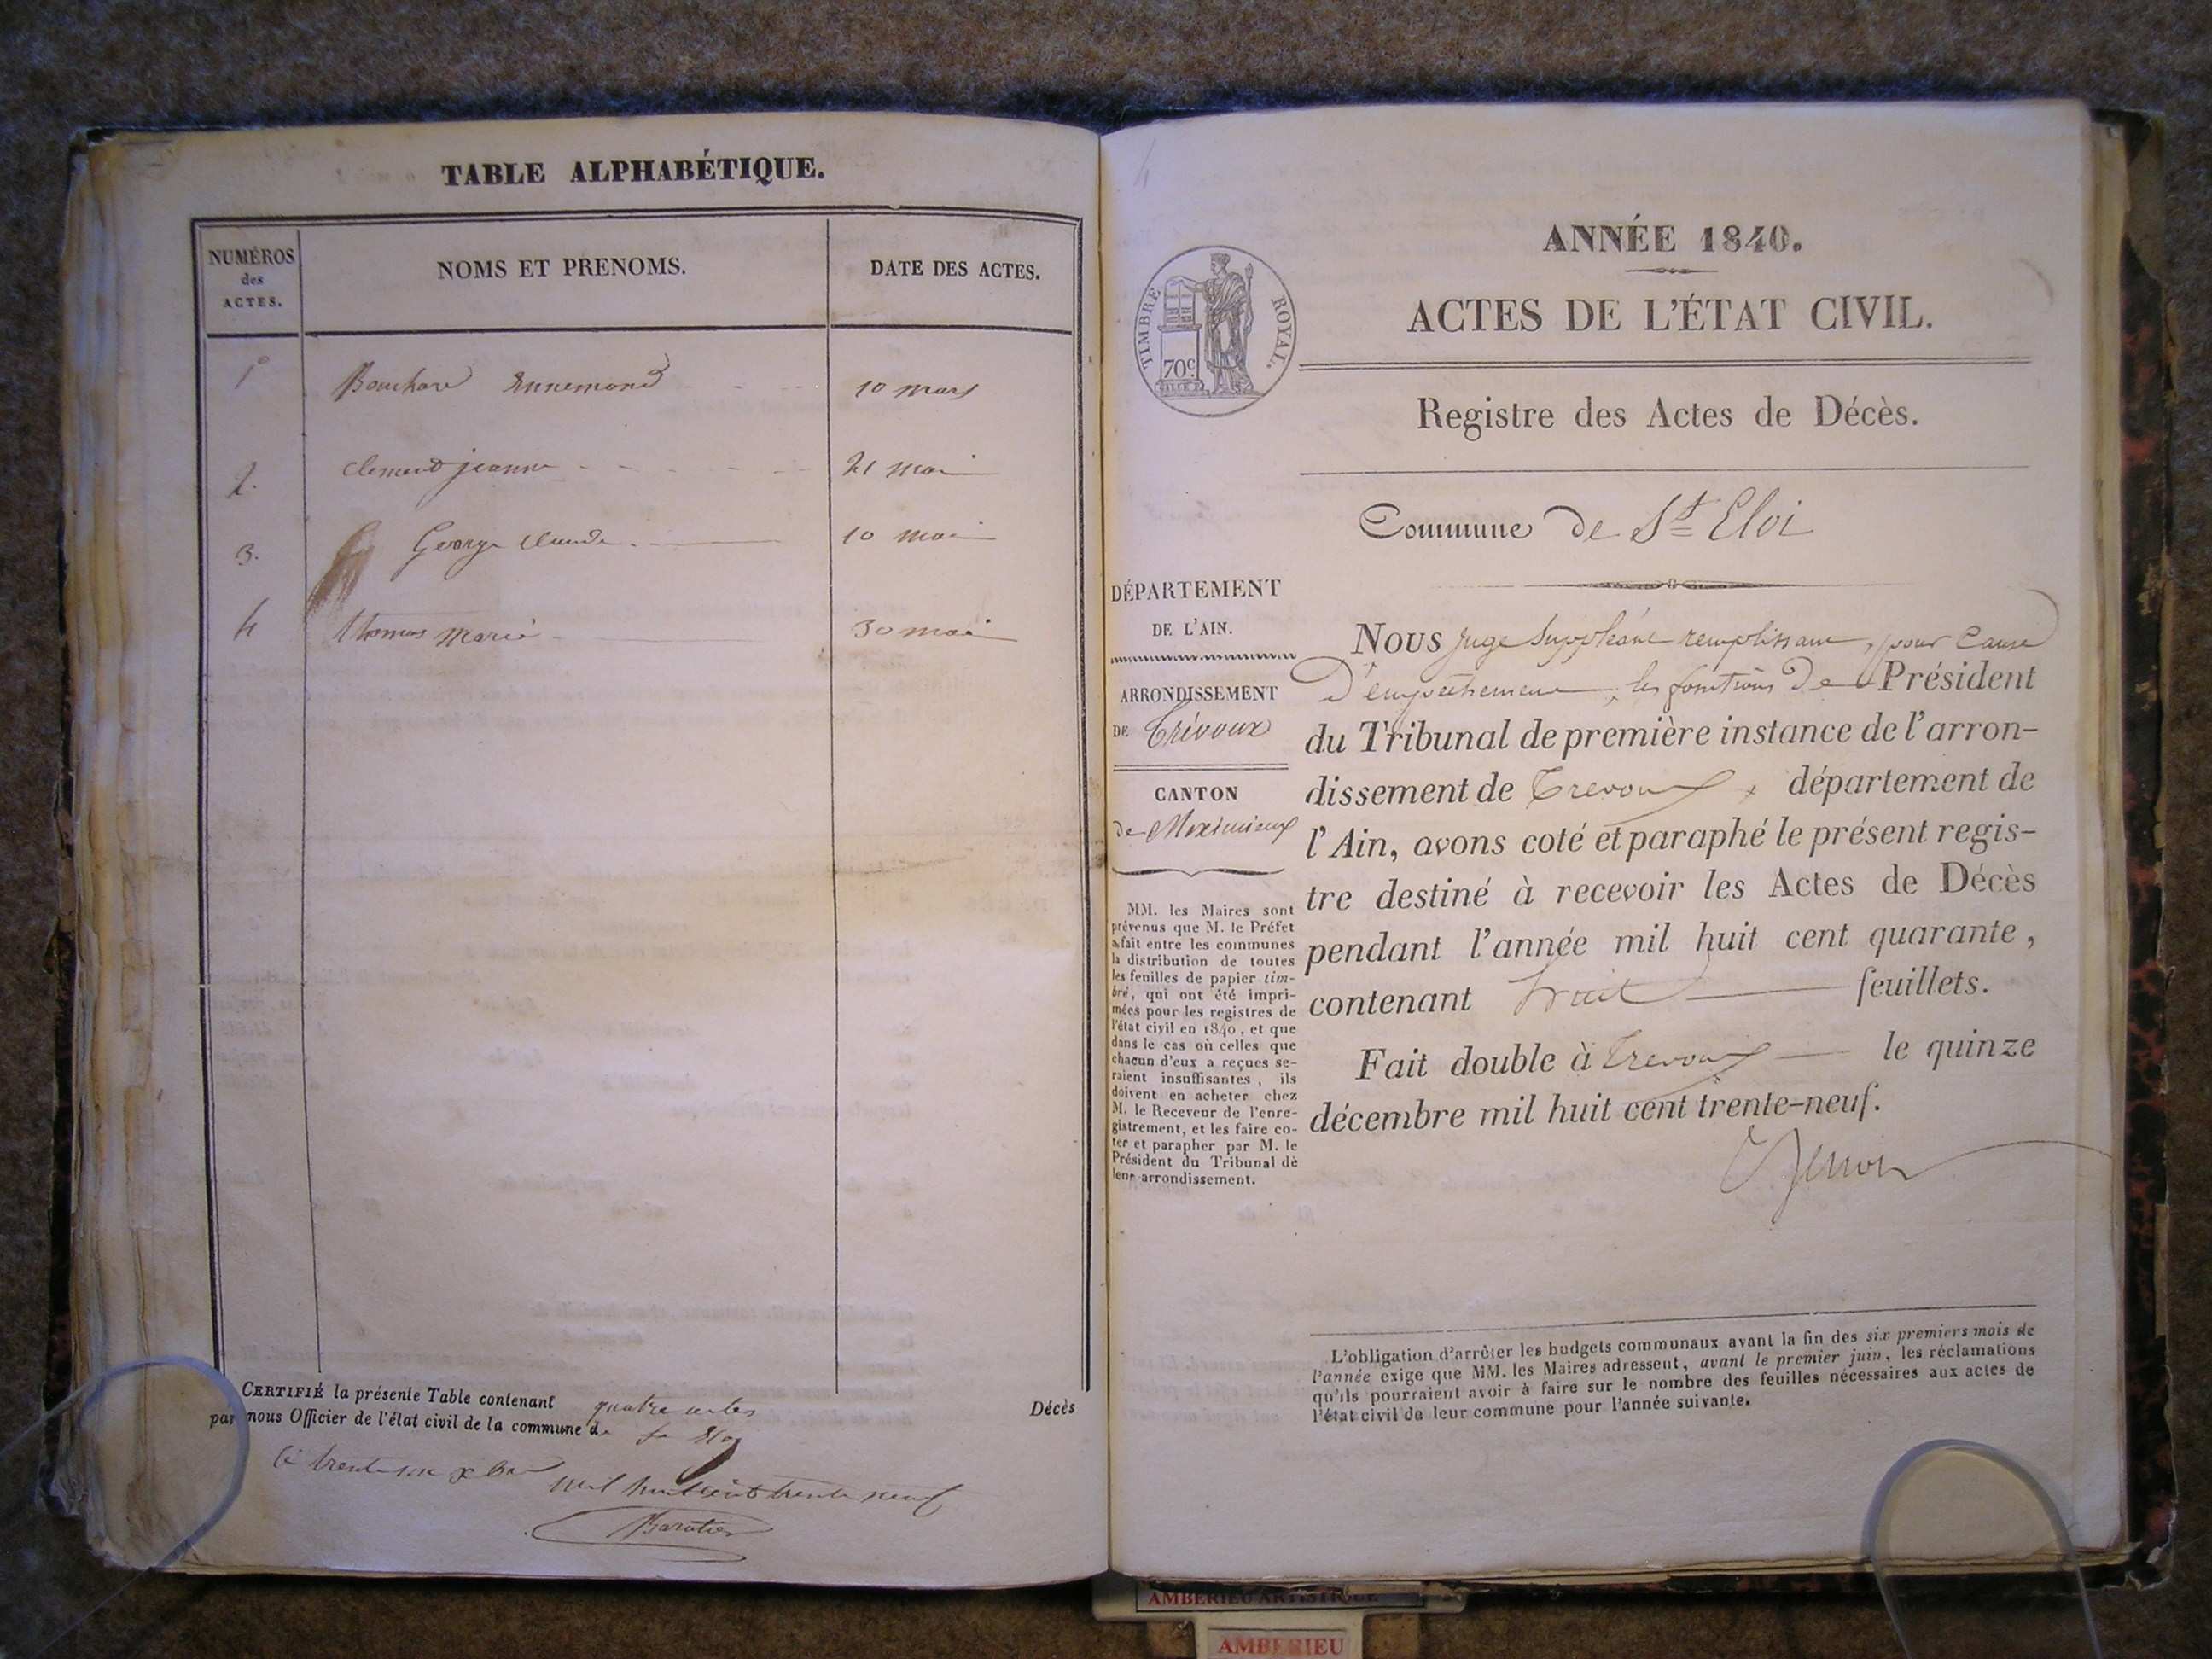 TABLE ALPHABÉTIQUE.
NUMÉROS
des
ACTES.
NOMS ET PRENOMS.
DATE DES ACTES.
1° Bouchard Ennemond 10 mars
2. Clement jeanne 21 mai
3. George Claude 10 mai
4 thomas marie 30 mai
CERTIFIÉ la présente Table contenant quatre actes Décès
par nous Officier de l'état civil de la commune de St Eloy
Ce trente xbre
mil huit cent trente neuf
4
ANNÉE 1840.
ACTES DE L'ÉTAT CIVIL.
TIMBRE ROYAL.
70c
Registre des Actes de Décès.
Commune de St Eloi
DÉPARTEMENT
DE L'AIN.
ARRONDISSEMENT
DE Trévoux
CANTON
de Meximieux
MM. les Maires sont
prévenus que M. le Préfet
a fait entre les communes
la distribution de toutes
les feuilles de papier tim-
bré, qui ont été impri-
mées pour les registres de
l'état civil en 1840, et que
dans le cas où celles que
chacun d'eux a reçues se-
raient insuffisantes, ils
doivent en acheter chez
M. le Receveur de l'enre-
gistrement, et les faire co-
ter et parapher par M. le
Président du Tribunal de
leur arrondissement.
NOUS juge suppléant remplissant, pour cause
D'empêchement, les fonctions de Président
du Tribunal de première instance de l'arron-
dissement de Trevoux, département de
l'Ain, avons coté et paraphé le présent regis-
tre destiné à recevoir les Actes de Décès
pendant l'année mil huit cent quarante,
contenant huit feuillets.
Fait double à Trevoux le quinze
décembre mil huit cent trente-neuf.
L'obligation d'arrêter les budgets communaux avant la fin des six premiers mois de
l'année exige que MM. les Maires adressent, avant le premier juin, les réclamations
qu'ils pourraient avoir à faire sur le nombre des feuilles nécessaires aux actes de
l'état civil de leur commune pour l'année suivante.
AMBERIEU ARTISTIQUE
AMBERIEU